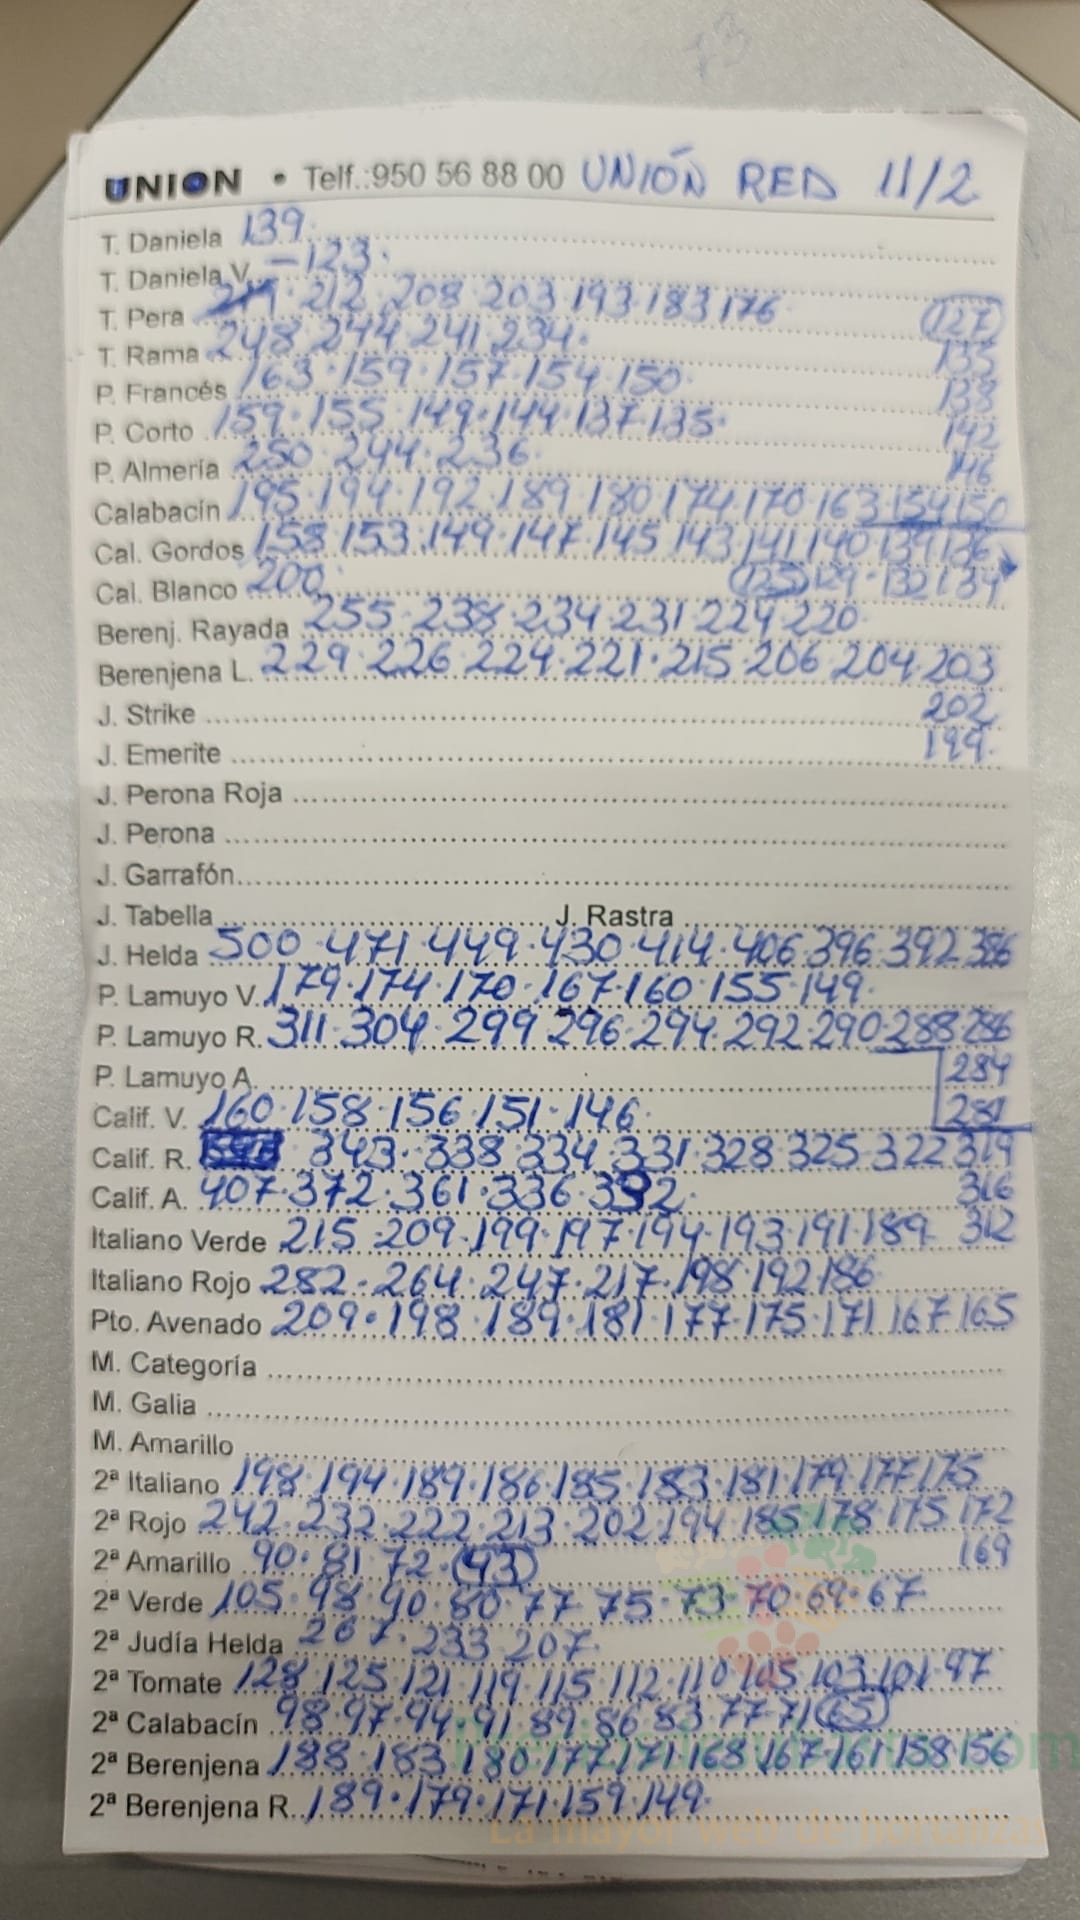 UNION • Telf.:950 56 88 00 UNIÓN RED 11/2
T. Daniela 139.
T. Daniela V. -123.
T. Pera 212 · 208 · 203 · 193 · 183 176 (127)
T. Rama 248 · 244 · 241 · 234. 135
P. Francés 163 · 159 · 157 · 154 · 150. 138
P. Corto 159 · 155 · 149 · 144 · 137 · 135. 142
P. Almería 250 · 244 · 236. 146
Calabacín 195 · 194 · 192 · 189 · 180 174 · 170 · 163 154 150
Cal. Gordos 158 153 · 149 · 147 · 145 143 141 140 · 139 136
Cal. Blanco 200. (125) 129 · 132 134
Berenj. Rayada 255 · 238 · 234 · 231 224 220.
Berenjena L. 229 · 226 · 224 · 221 · 215 206 · 204 · 203
J. Strike 202
J. Emerite 199.
J. Perona Roja
J. Perona
J. Garrafón
J. Tabella J. Rastra
J. Helda 500 · 471 · 449 · 430 · 414 · 406 · 396 · 392 · 386
P. Lamuyo V. 179 · 174 · 170 · 167 · 160 · 155 · 149.
P. Lamuyo R. 311 · 304 · 299 296 · 294 · 292 · 290 · 288 · 286
P. Lamuyo A. 284
Calif. V. 160 · 158 · 156 · 151 · 146. 281
Calif. R. 343 · 338 · 334 · 331 · 328 · 325 · 322 319
Calif. A. 407 · 372 · 361 · 336 · 332. 316
Italiano Verde 215 · 209 · 199 · 197 · 194 · 193 · 191 · 189 312
Italiano Rojo 282 · 264 · 247 · 217 · 198 · 192 186
Pto. Avenado 209 · 198 · 189 · 181 · 177 · 175 · 171 · 167 165
M. Categoría
M. Galia
M. Amarillo
2ª Italiano 198 · 194 · 189 · 186 · 185 · 183 · 181 · 179 · 177 175
2ª Rojo 242 · 232 · 222 · 213 · 202 194 185 · 178 · 175 172
2ª Amarillo 90 · 81 72 · (43) 169
2ª Verde 105 · 98 · 90 · 80 · 77 75 · 73 · 70 · 69 · 67
2ª Judía Helda 267 · 233 207.
2ª Tomate 128 125 · 121 · 119 · 115 112 · 110 · 105 · 103 · 101 · 97
2ª Calabacín 98 · 97 · 94 · 91 89 · 86 83 77 · 71 (65)
2ª Berenjena 188 · 183 · 180 · 177 171 · 168 · 167 · 161 158 156
2ª Berenjena R. 189 · 179 · 171 · 159 · 149.
La mayor web de hortalizas